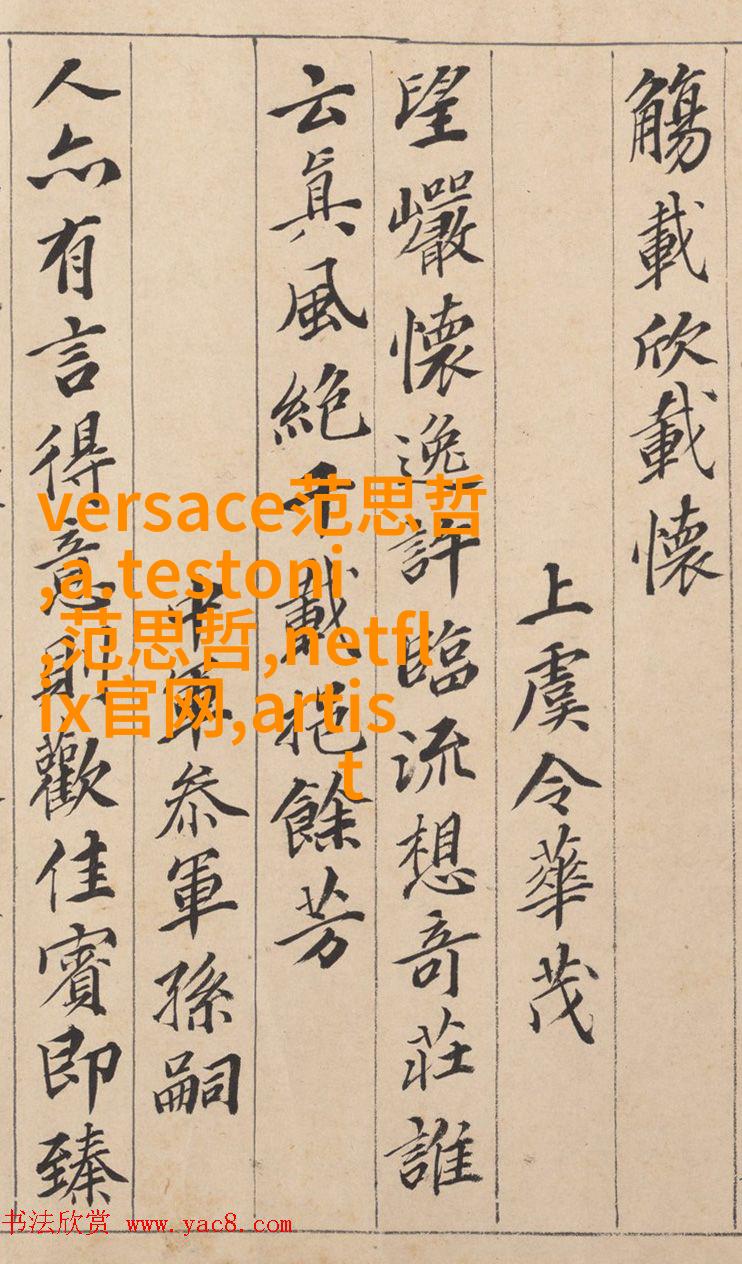 觴載欣載懷
上虞令華茂
望巖懷逸許臨流想奇莊誰
云真風絕千載挹餘芳
中軍叅軍孫嗣
人亦有言得意則歡佳賓即臻
versace范思哲
,a.testoni
,范思哲,netfl
ix官网,artis
t
书法欣赏 www.yac8.com